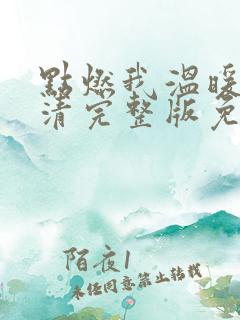 點燃我溫暖
清完整版免
陌夜1
未经同意禁止转载